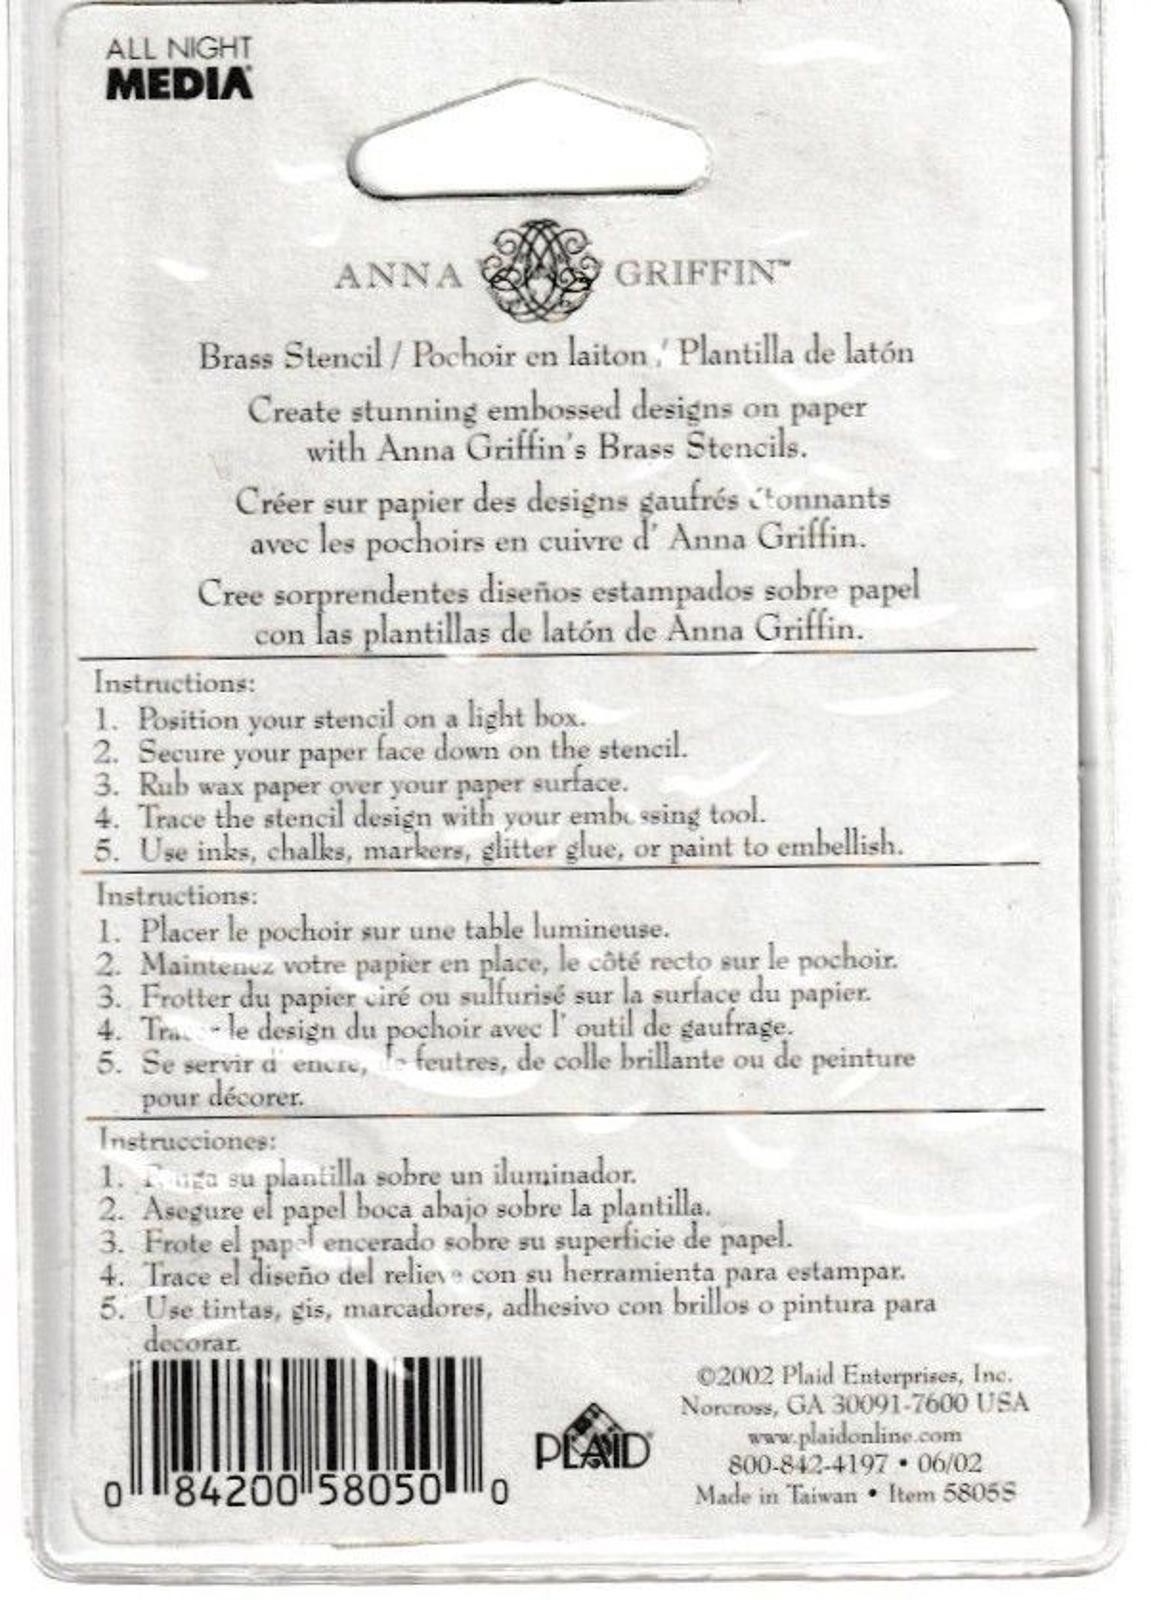 ALL NIGHT
MEDIA
ANNA GRIFFIN™
Brass Stencil / Pochoir en laiton / Plantilla de latón
Create stunning embossed designs on paper
with Anna Griffin's Brass Stencils.
Créer sur papier des designs gaufrés étonnants
avec les pochoirs en cuivre d' Anna Griffin.
Cree sorprendentes diseños estampados sobre papel
con las plantillas de latón de Anna Griffin.
Instructions:
1. Position your stencil on a light box.
2. Secure your paper face down on the stencil.
3. Rub wax paper over your paper surface.
4. Trace the stencil design with your embossing tool.
5. Use inks, chalks, markers, glitter glue, or paint to embellish.
Instructions:
1. Placer le pochoir sur une table lumineuse.
2. Maintenez votre papier en place, le côté recto sur le pochoir.
3. Frotter du papier ciré ou sulfurisé sur la surface du papier.
4. Tracer le design du pochoir avec l' outil de gaufrage.
5. Se servir d' encre, de feutres, de colle brillante ou de peinture
pour décorer.
Instrucciones:
1. su plantilla sobre un iluminador.
2. Asegure el papel boca abajo sobre la plantilla.
3. Frote el papel encerado sobre su superficie de papel.
4. Trace el diseño del relieve con su herramienta para estampar.
5. Use tintas, gis, marcadores, adhesivo con brillos o pintura para
decorar.
0 84200 58050 0
PLAID®
©2002 Plaid Enterprises, Inc.
Norcross, GA 30091-7600 USA
www.plaidonline.com
800-842-4197 • 06/02
Made in Taiwan • Item 5805S